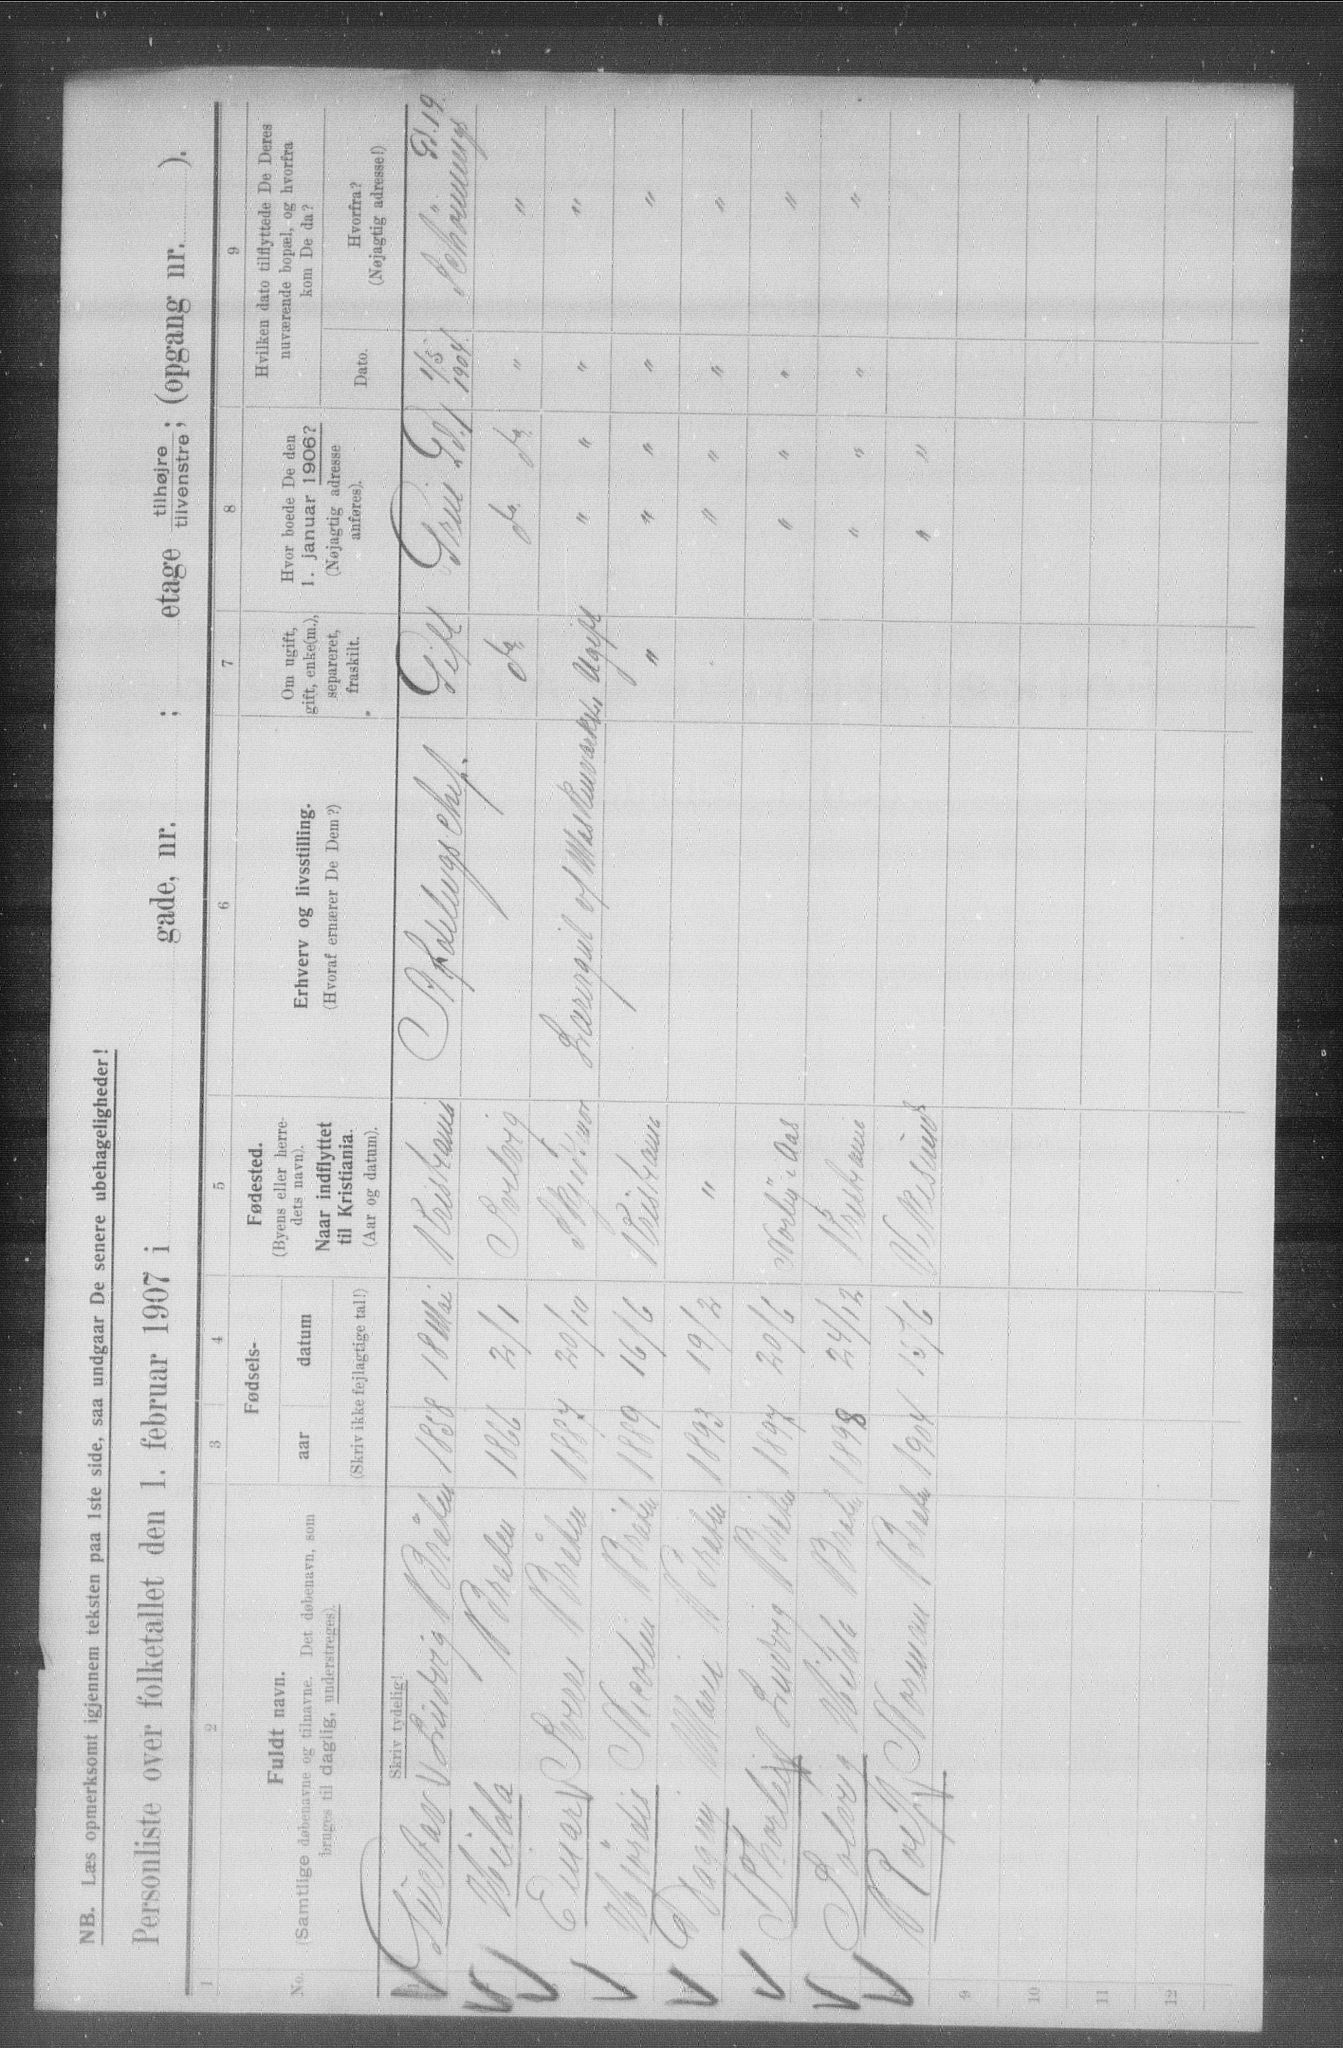 NB. Læs opmerksomt igjennem teksten paa 1ste side, saa undgaar De senere ubehageligheder!
Personliste over folketallet den 1. februar 1907 i gade, nr. ; etage tilhøjre tilvenstre ; (opgang nr. ).
1 2 3 4 5 6 7 8 9
No. Fuldt navn. (Samtlige døbenavne og tilnavne. Det døbenavn, som bruges til daglig, understreges).
Fødsels- aar datum
(Skriv ikke fejlagtige tal!)
Fødested. (Byens eller herredets navn). Naar indflyttet til Kristiania. (Aar og datum).
Erhverv og livsstilling. (Hvoraf ernærer De Dem?)
Om ugift, gift, enke(m.), separeret, fraskilt.
Hvor boede De den 1. januar 1906? (Nøjagtig adresse anføres).
Hvilken dato tilflyttede De Deres nuværende bopæl, og hvorfra kom De da?
Dato. Hvorfra? (Nøjagtig adresse!)
Skriv tydelig!
Gustav Ludvig Bråten 1858 18 Mai Kristiania Afdelingschef. Gift 1/5 1904. Schønnings Gd. 19
Hilda Braten 1866 2/1 Solvig do do do " "
Einar Sverre Bråten 1887 20/10 Ugift " " " "
Hjørdis Nicoline Bråten 1889 16/6 Kristiania " " " " "
Dagny Marie Bråten 1893 19/2 " " " " "
Thorleif Ludvig Bråten 1897 20/6 Aas " " " "
Solveig Hilda Bråten 1898 24/12 Kristiania " " " "
Rolf Normann Bråten 1904 15/6 " "
9
10
11
12